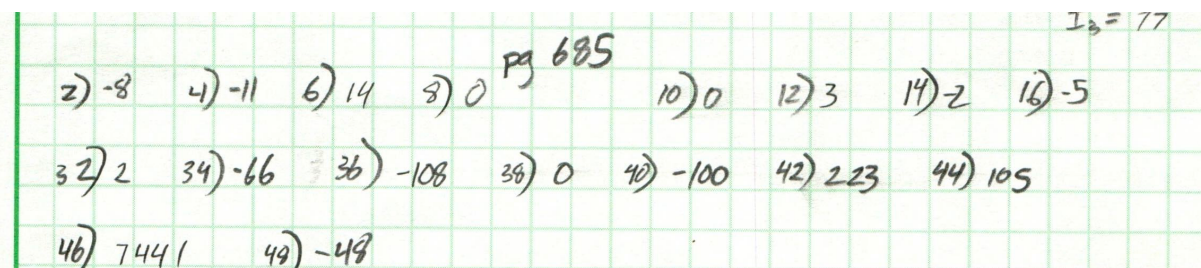 I₃ = 77
pg 685
2) -8 4) -11 6) 14 8) 0 10) 0 12) 3 14) -2 16) -5
32) 2 34) -66 36) -108 38) 0 40) -100 42) 223 44) 105
46) 7441 48) -48